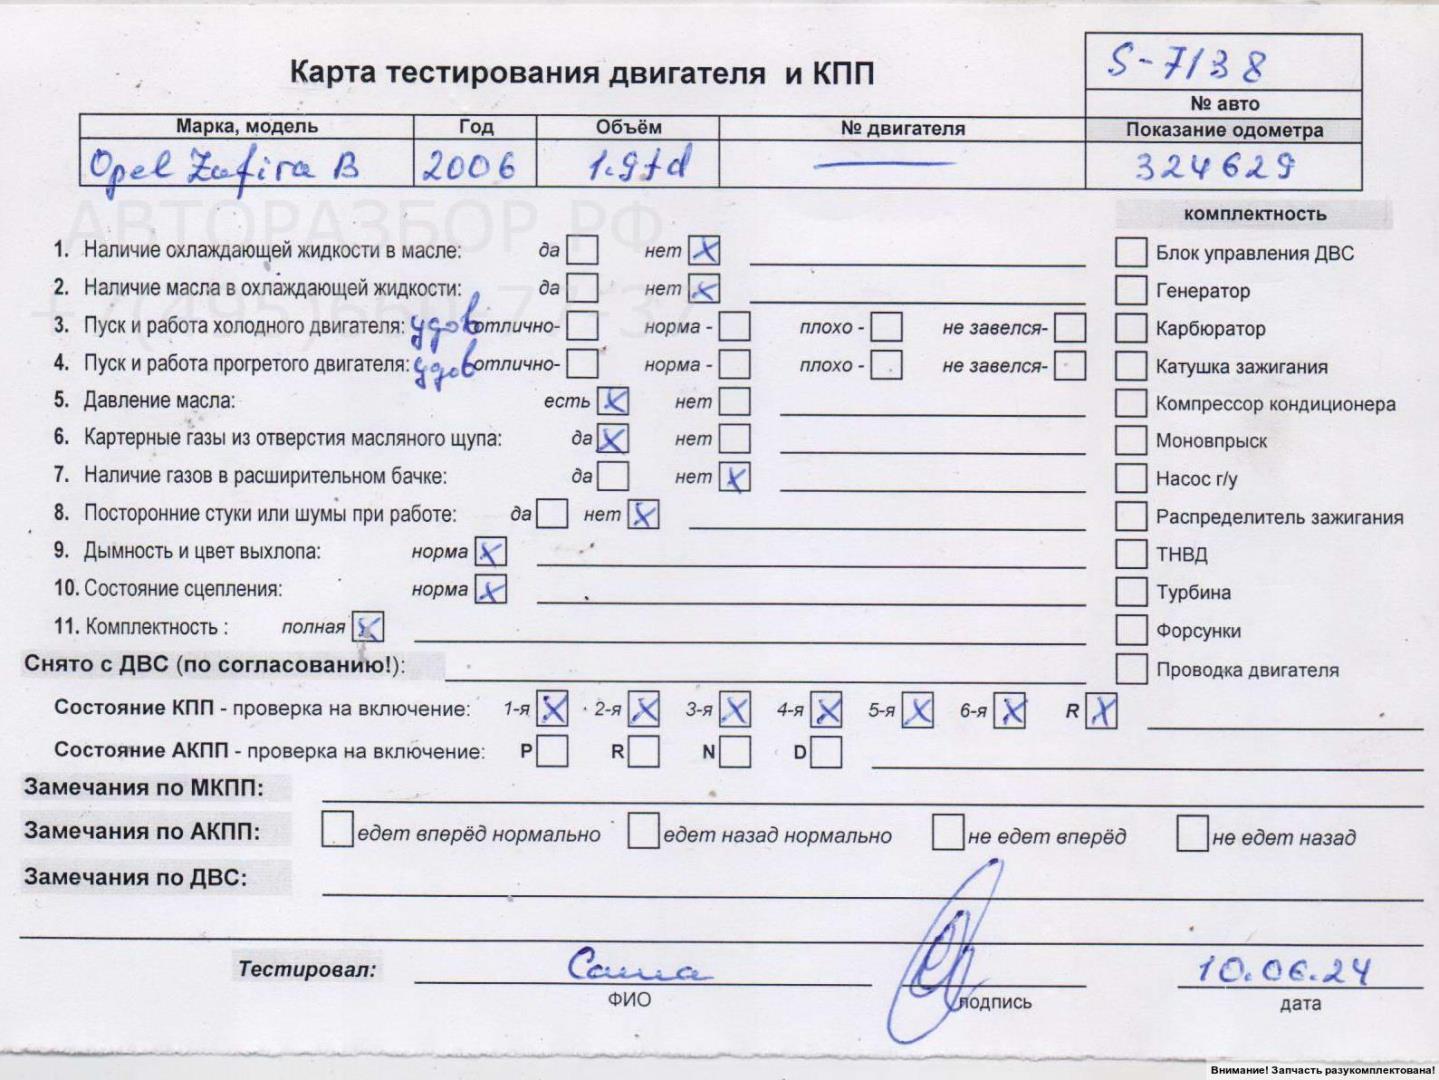 S-7138
Карта тестирования двигателя и КПП
№ авто
Марка, модель Год Объём № двигателя Показание одометра
Opel Zafira B 2006 1.9td — 324629
АВТОРАЗБОР.РФ
комплектность
1. Наличие охлаждающей жидкости в масле: да нет x
Блок управления ДВС
2. Наличие масла в охлаждающей жидкости: да нет x
Генератор
3. Пуск и работа холодного двигателя: удов отлично- норма - плохо - не завелся-
Карбюратор
4. Пуск и работа прогретого двигателя: удов отлично- норма - плохо - не завелся-
Катушка зажигания
5. Давление масла: есть x нет
Компрессор кондиционера
6. Картерные газы из отверстия масляного щупа: да x нет
Моновпрыск
7. Наличие газов в расширительном бачке: да нет x
Насос г/у
8. Посторонние стуки или шумы при работе: да нет x
Распределитель зажигания
9. Дымность и цвет выхлопа: норма x
ТНВД
10. Состояние сцепления: норма x
Турбина
11. Комплектность : полная x
Форсунки
Снято с ДВС (по согласованию!):
Проводка двигателя
Состояние КПП - проверка на включение: 1-я x 2-я x 3-я x 4-я x 5-я x 6-я x R x
Состояние АКПП - проверка на включение: P R N D
Замечания по МКПП:
Замечания по АКПП: едет вперёд нормально едет назад нормально не едет вперёд не едет назад
Замечания по ДВС:
Тестировал: Саша 10.06.24
ФИО подпись дата
Внимание! Запчасть разукомплектована!